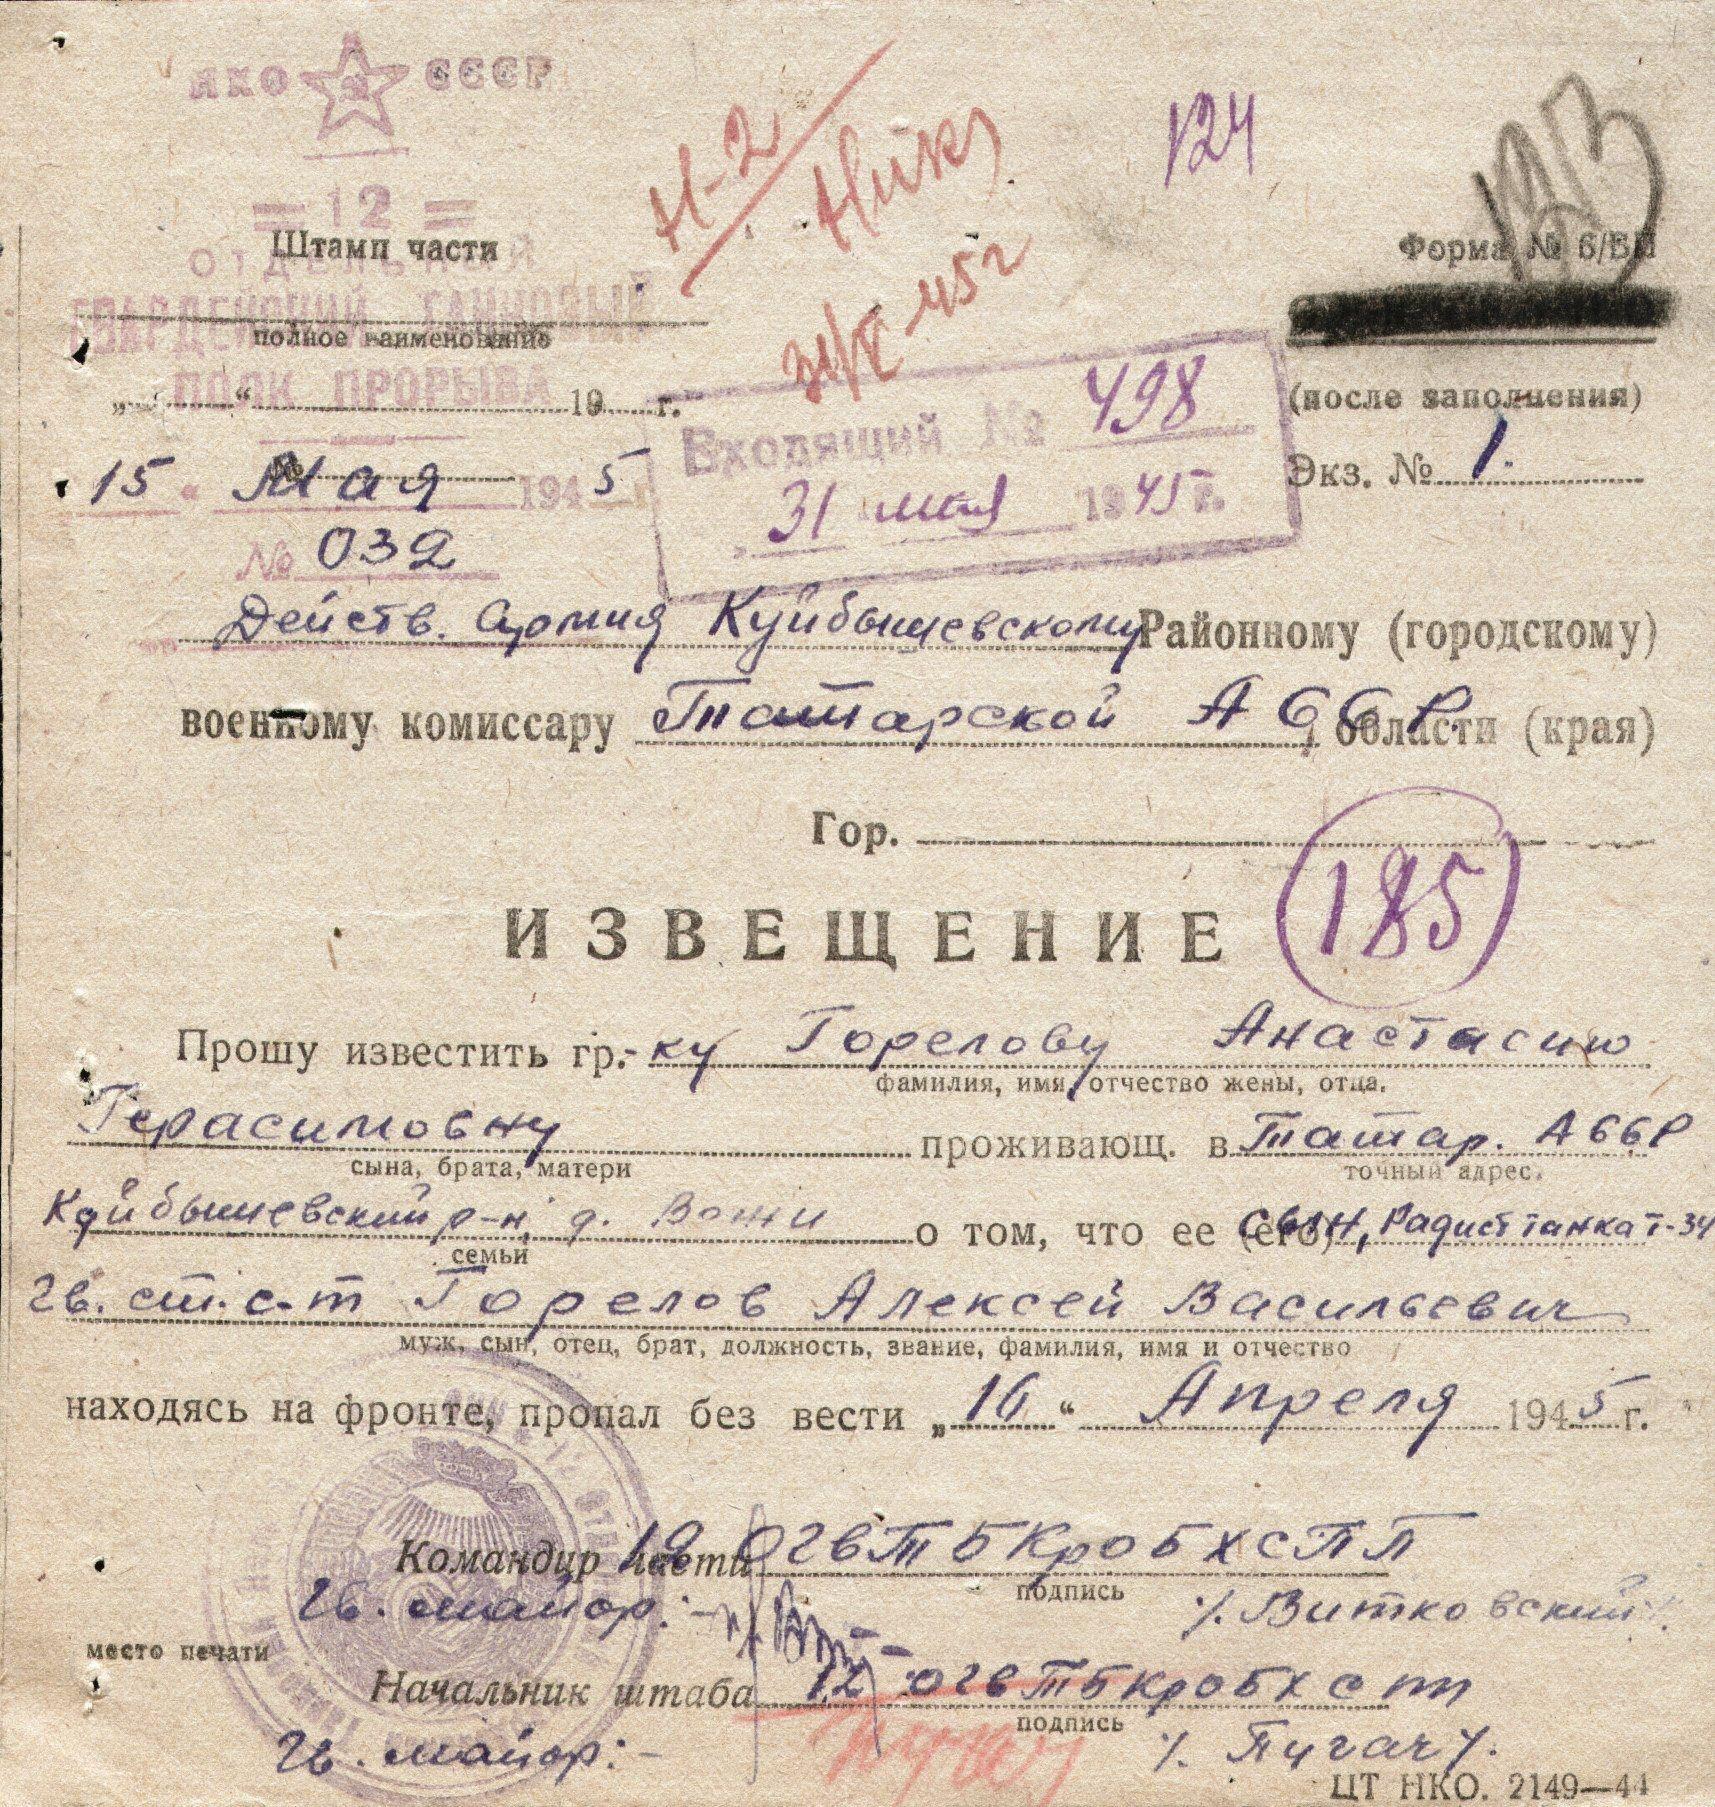 НКО СССР
124
Н-2
= 12 =
Штамп части
ОТДЕЛЬНЫЙ
Форма № 6/БП
ГВАРДЕЙСКИЙ ТАНКОВЫЙ
полное наименование
45 г
ПОЛК ПРОРЫВА
„ “ 19 г.
(после заполнения)
Входящий № 498
Экз. № 1.
15 " Мая 1945 г.
31 мая 1945 г.
№ 032
Действ. армия Куйбышевскому Районному (городскому)
военному комиссару Татарской АССР, области (края)
Гор.
ИЗВЕЩЕНИЕ
185
Прошу известить гр.-ку Горелову Анастасию
фамилия, имя, отчество жены, отца.
Герасимовну проживающ. в Татар. АССР
сына, брата, матери точный адрес.
Куйбышевский р-н, д. Вожи о том, что ее (его) сын, Радист танка Т-34
семьи
гв. ст. с-т Горелов Алексей Васильевич
муж, сын, отец, брат, должность, звание, фамилия, имя и отчество
находясь на фронте, пропал без вести „16“ Апреля 1945 г.
Командир части 12 ОГвТБКроБХсПП
подпись
Гв. майор:- /. Витковский /.
место печати
Начальник штаба 12 ОГвТБКроБХсПП
подпись
Гв. майор:- /. Пугач /.
ЦТ НКО. 2149—44